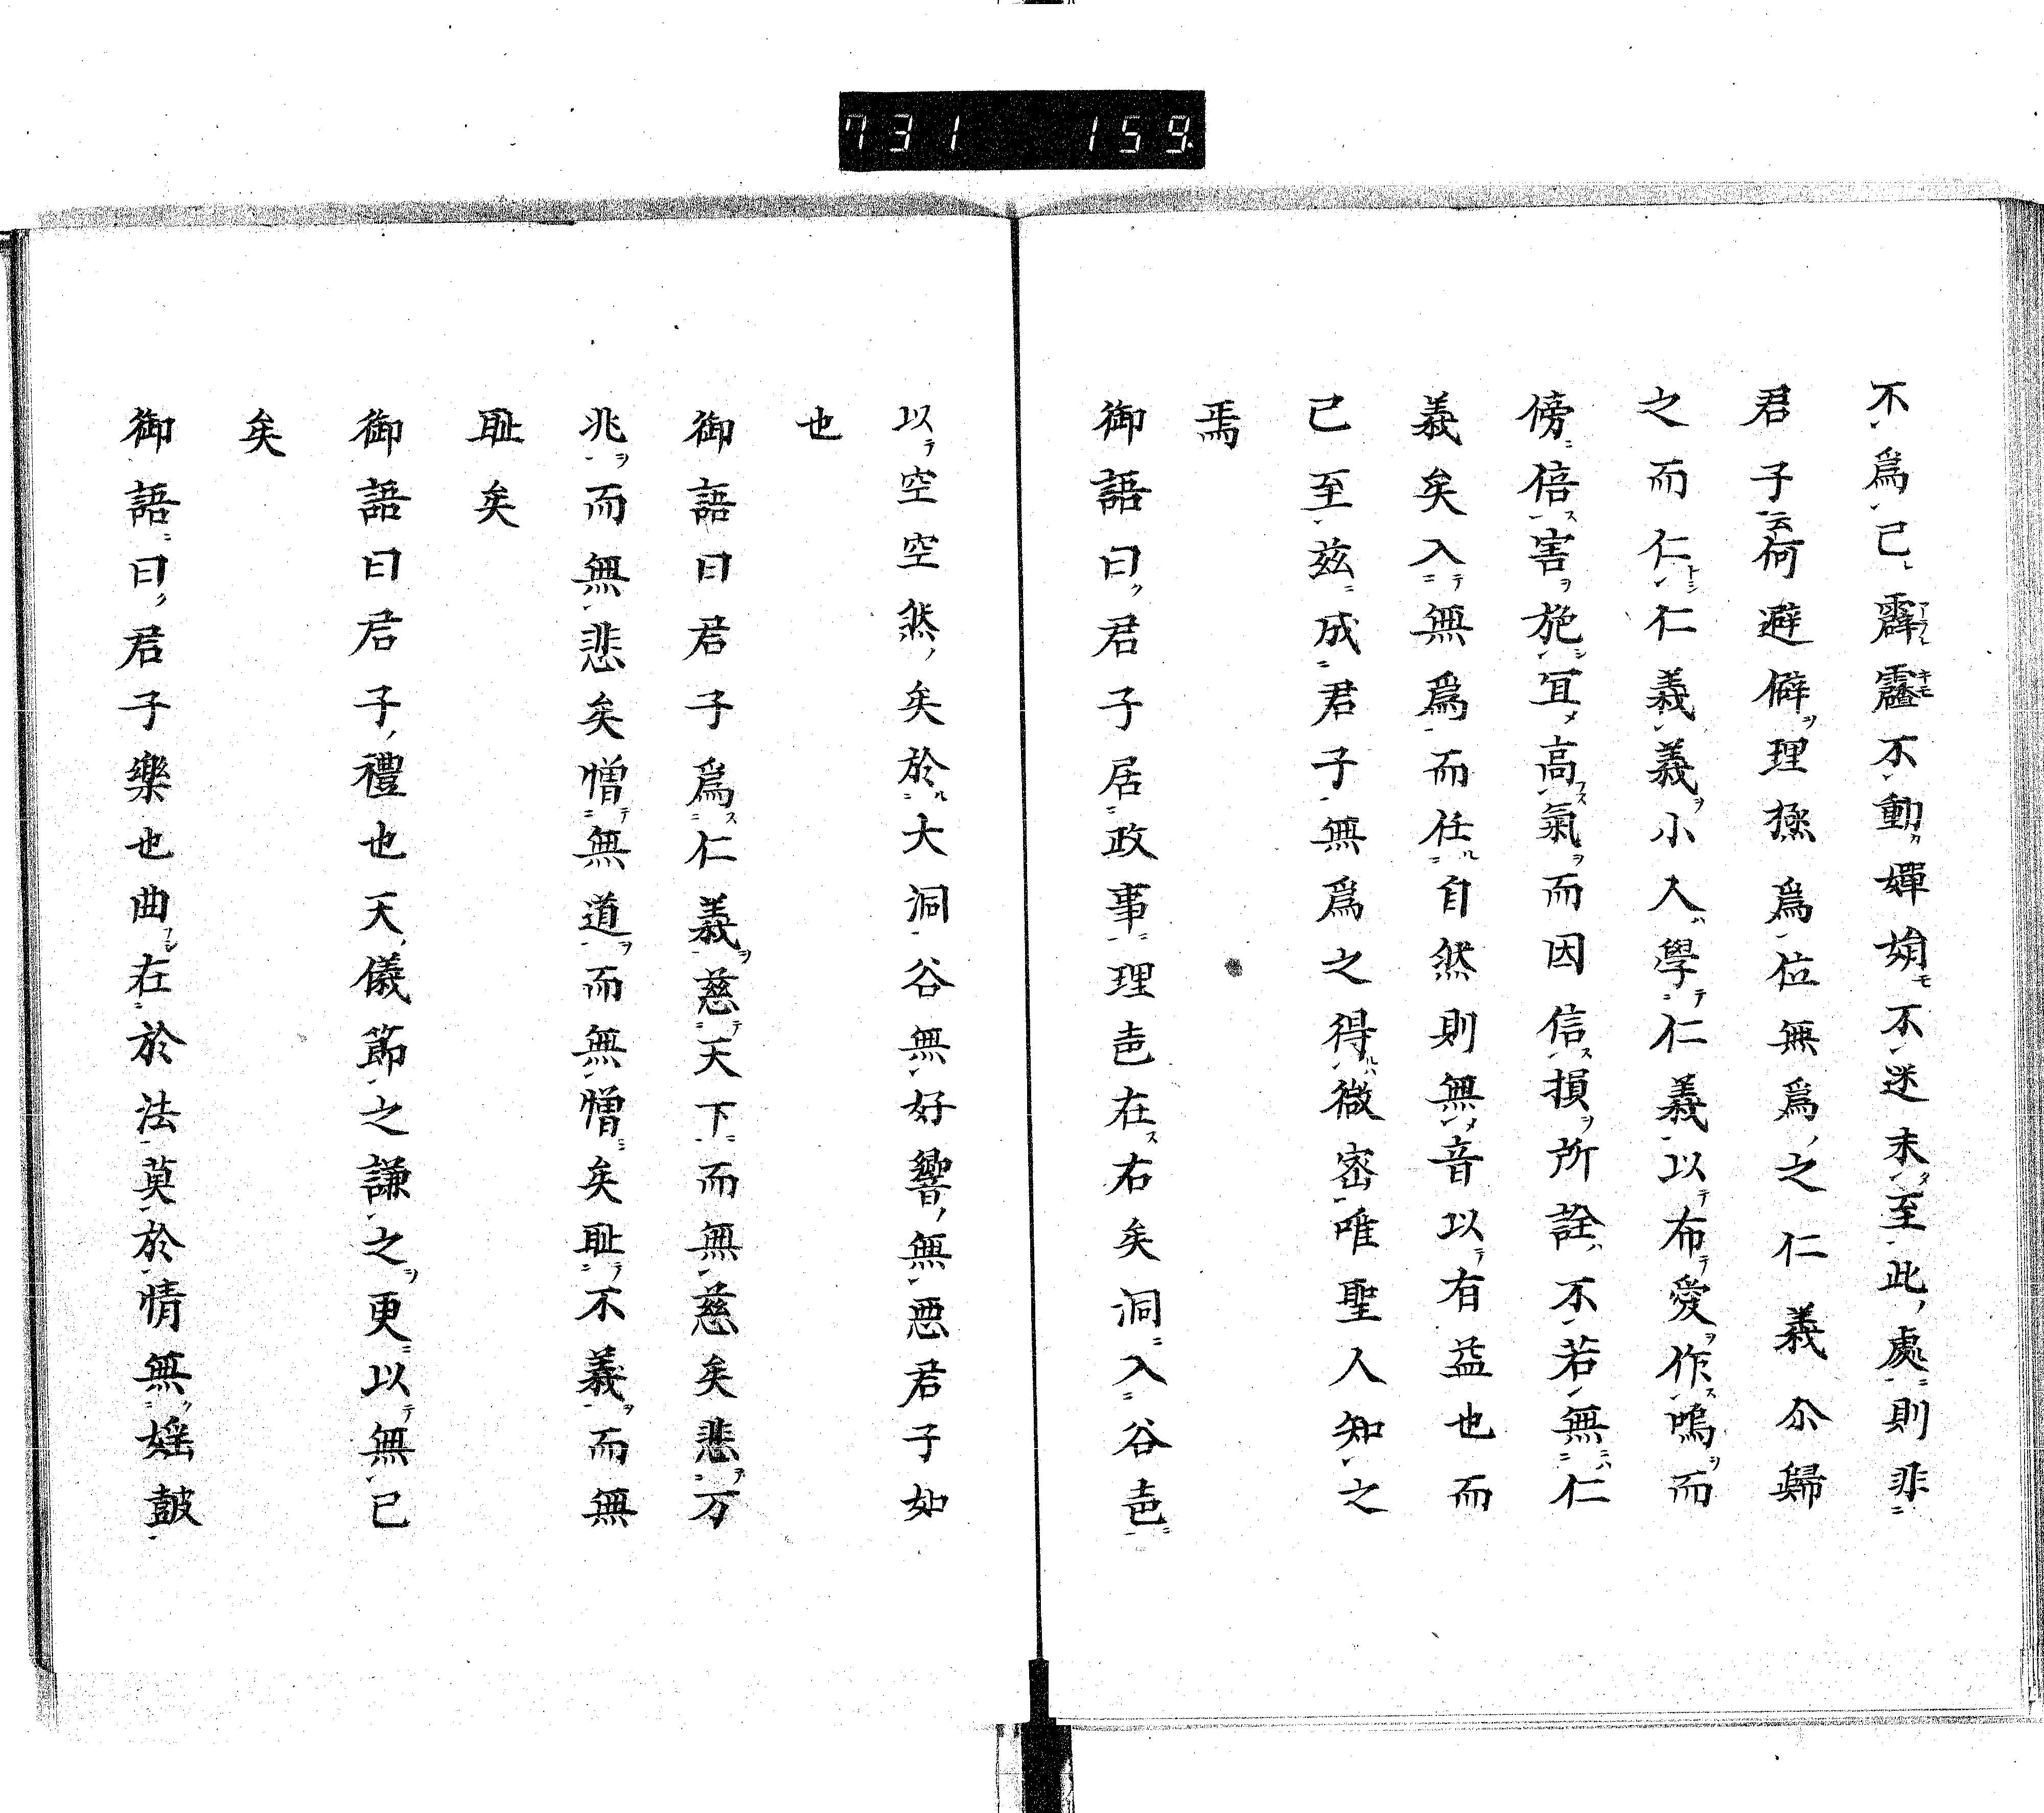 731 159
不爲己霹靂不動嬋娟不迷未至此處則非
君子云何避僻理極爲位無爲之仁義尒歸
之而仁仁義義小人學仁義以布愛作鳴而
傍倍害施冝高氣而因信損所詮不若無仁
義矣入無爲而任自然則無音以有益也而
己至茲成君子無爲之得微密唯聖人知之
焉
御語曰君子居政事理壱在右矣洞入谷壱
以空空然矣於大洞谷無好響無悪君子如
也
御語曰君子爲仁義慈天下而無慈矣悲万
兆而無悲矣憎無道而無憎矣耻不義而無
耻矣
御語曰君子禮也天儀節之謙之更以無己
矣
御語曰君子樂也曲在於法莫於情無婬皷